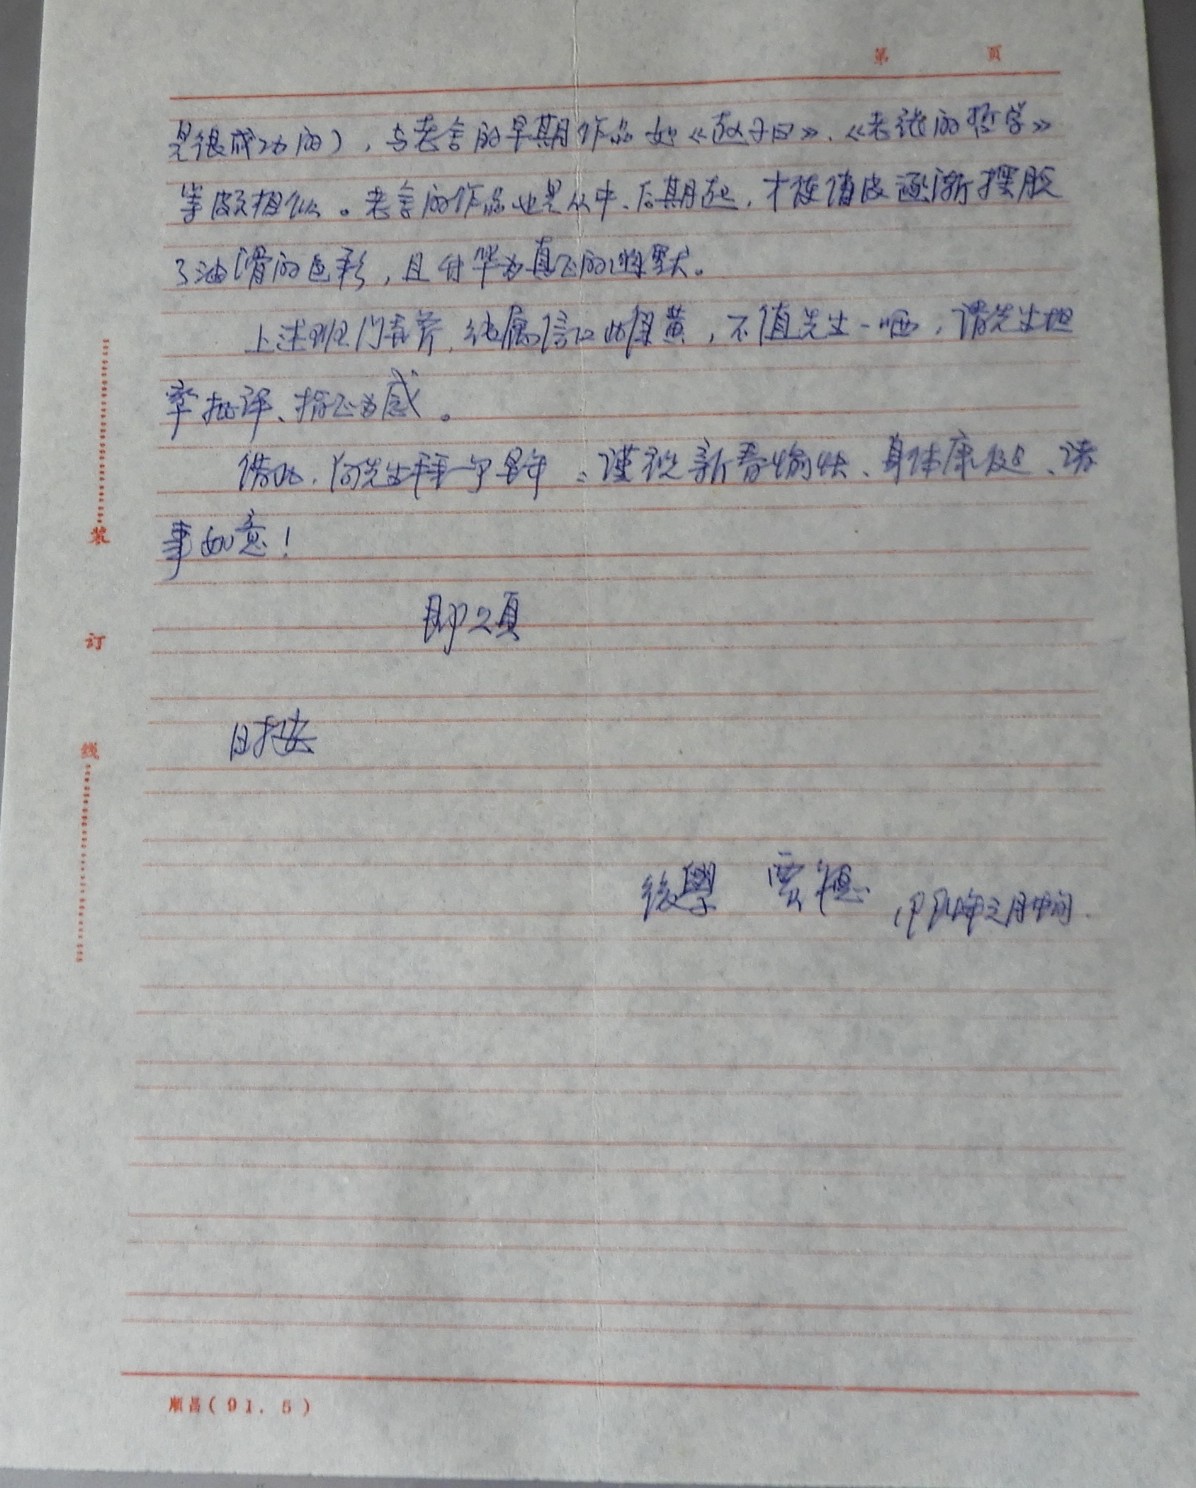 第 页
是很成功的），与老舍的早期作品如《赵子曰》、《老张的哲学》
等颇相似。老舍的作品也是从中、后期起，才使俏皮逐渐摆脱
了油滑的色彩，且升华为真正的幽默。
上述班门弄斧，纯属信口雌黄，不值先生一哂，请先生坦
率批评、指正为感。
借此，向先生拜一个早年：谨祝新春愉快、身体康健、诸
事如意！
即颂
时安
後學 贾 月中旬
装
订
线
顺昌(91.5)